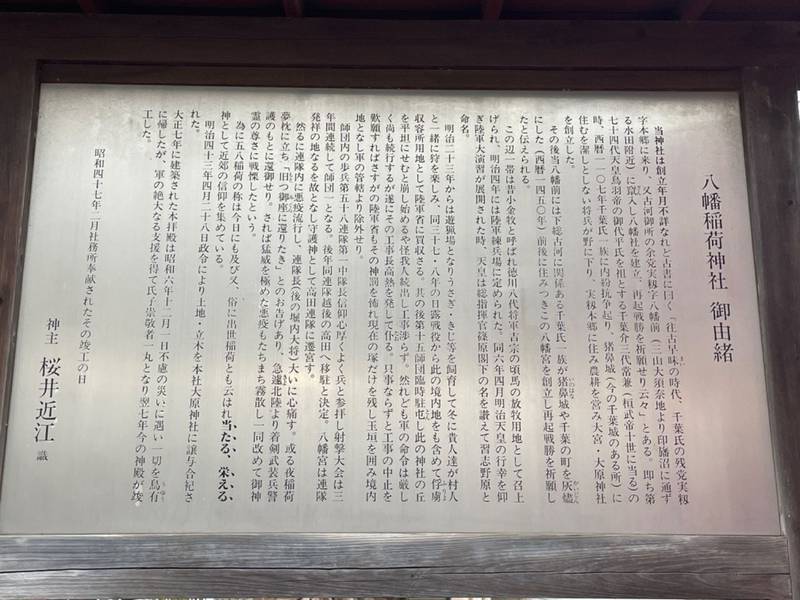 八幡稲荷神社 御由緒
当神社は創立年月不詳なれど古書に曰く「往古草味の時代、千葉氏の残党実籾
字本郷に来り、又古河御所の余党実籾字八幡前(三山大須奈地より印旛沼に通ず
る水田附近)に竄入し八幡社を建立、再起戦勝を祈願せり云々」とある。即ち第
七十四代天皇鳥羽帝の御代平氏を祖とする千葉介三代常兼(桓武帝十世に当る)の
時、西暦一一〇七年千葉氏一族に内紛抗争起り、猪鼻城(今の千葉城のある所)に
住むを潔しとしない将兵が野に下り、実籾本郷に住み農耕を営み大宮・大原神社
を創立した。
その後当八幡前には下総古河に関係ある千葉氏一族が猪鼻城や千葉の町を灰燼
にした(西暦一四五〇年)前後に住みつきこの八幡宮を創立し再起戦勝を祈願し
たと伝えられる。
この辺一帯は昔小金牧と呼ばれ徳川八代将軍吉宗の頃馬の放牧用地として召上
げられ、明治四年には陸軍練兵場に定められた。同六年四月明治天皇の行幸を仰
ぎ陸軍大演習が展開された時、天皇は総指揮官篠原閣下の名を讃えて習志野原と
命名。
明治二十三年からは御猟場となりうさぎ・きじ等を飼育して冬に貴人達が村人
と一緒に狩を楽しみ、同三十七・八年の日露戦役から此の境内地をも含めて俘虜
収容所用地として陸軍省に買収さる。其の後第十五師団臨時駐屯し此の神社の丘
を平坦にせむと崩し始めるや怪我人続出し工事渉らず。然れども軍の命令は厳し
く尚も続行するが遂にその工事長高熱を発して仆る。只事ならずと工事の中止を
歎願すればさすがの陸軍省もその神罰を怖れ現在の塚だけを残し玉垣を囲み境内
地となし軍の管轄より除外せり。
師団内の歩兵第五十八連隊第一中隊長信仰心厚くよく兵と参拝し射撃大会は三
年間連続して師団一となる。後年同連隊越後の高田へ移駐と決定。八幡宮は連隊
発祥の地なるを故となし守護神として高田連隊に遷宮す。
然るに連隊内に悪疫流行し、連隊長(後の堀内大将)大いに心痛す。或る夜稲荷
夢枕に立ち「旧つ御座に還りたき」とのお告げあり、急遽北陸より着剣武装兵警
護のもとに還御せり。されば猛威を極めた悪疫もたちまち霧散し一同改めて御神
霊の尊さに戦慄したという。
為に五八稲荷の称は今日にも及び又、俗に出世稲荷とも云はれ当たる、栄える、
神として近郊の信仰を集めている。
明治四十三年四月二十八日政令により土地・立木を本社大原神社に譲与合祀さ
れた。
大正七年に建築された本拝殿は昭和六年十二月一日不慮の災いに遇い一切を烏有
に帰したが、軍の絶大なる支援を得て氏子崇敬者一丸となり翌七年今の神殿が竣
工した。
昭和四十七年二月社務所奉献されたその竣工の日
神主 桜井近江 識